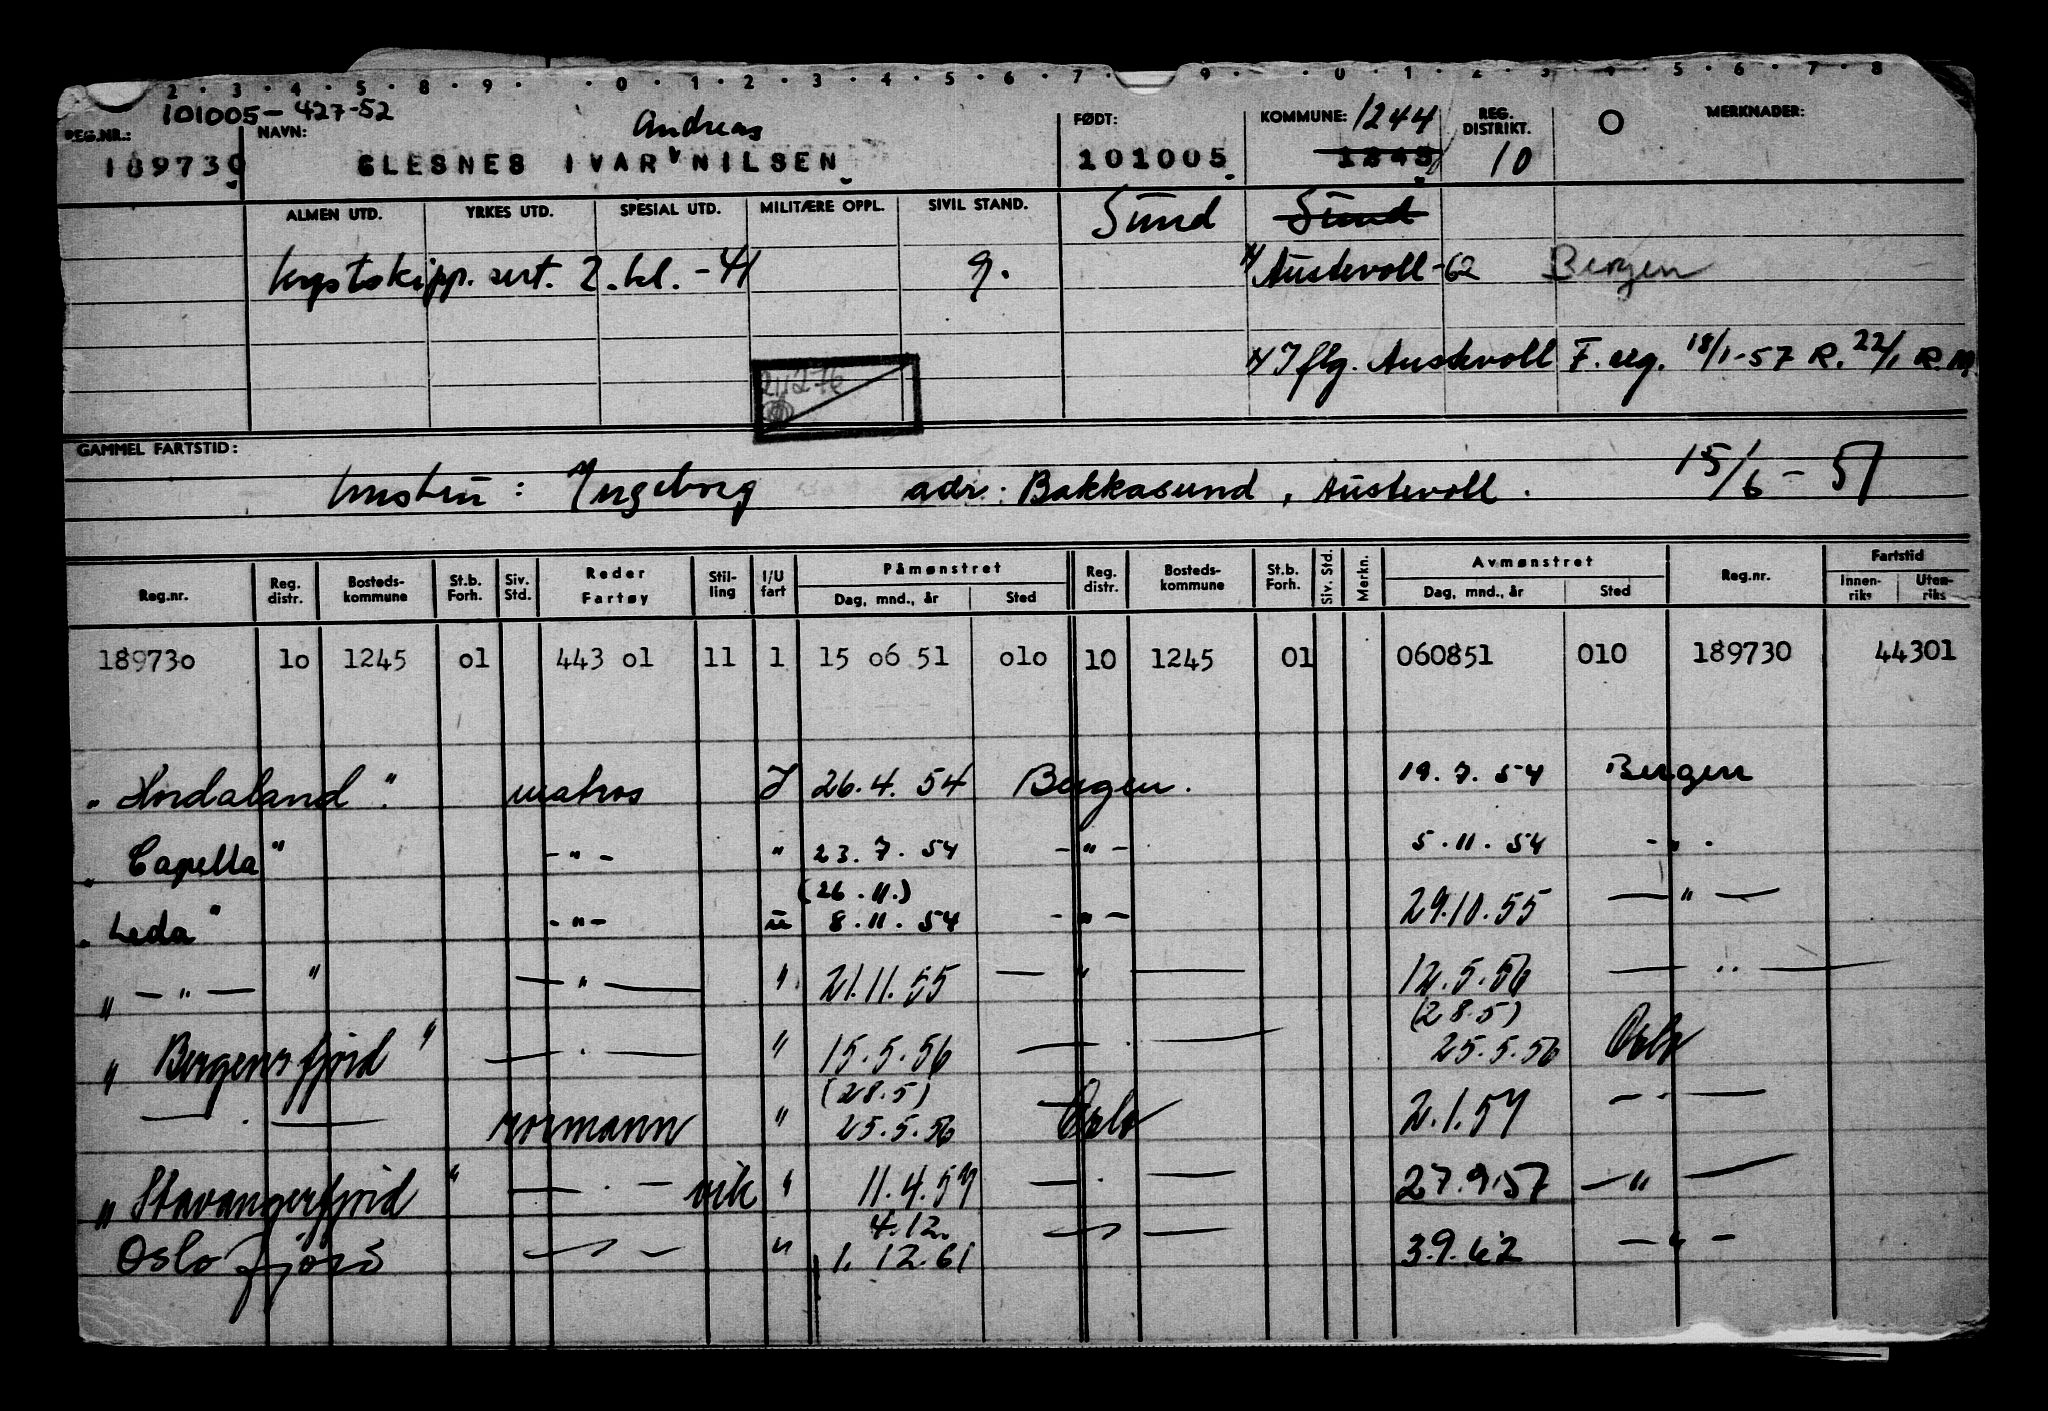 2 · 3 · 4 · 5 · 8 · 9 · · 0 · 1 · 2 · 3 · 4 · 5 · 6 · 7 · 9 · · 0 · 1 · 2 · 3 · 4 · 5 · 6 · 7 · 8
101005-427-52
REG.NR.: NAVN: Andreas FØDT: KOMMUNE: 1244 REG. DISTRIKT. O MERKNADER:
189730 GLESNES IVAR NILSEN 101005 10
ALMEN UTD. YRKES UTD. SPESIAL UTD. MILITÆRE OPPL. SIVIL STAND. Sund Sund
kystskipp. sert. 2. kl. -41 g. Austevoll -62 Bergen
I flg. Austevoll F. reg. 18/1-57 R. 22/1
GAMMEL FARTSTID:
hustru: Ingeborg adr: Bakkasund, Austevoll. 15/6-51
Påmønstret Avmønstret Fartstid
Reg.nr. Reg. distr. Bosteds-kommune St.b. Forh. Siv. Std. Reder Fartøy Stil-ling I/U fart Dag, mnd., år Sted Reg. distr. Bosteds-kommune St.b. Forh. Siv. Std. Merkn. Dag, mnd., år Sted Reg.nr. Innen-riks Uten-riks
189730 10 1245 01 443 01 11 1 15 06 51 010 10 1245 01 060851 010 189730 44301
"Hordaland" matros I 26.4.54 Bergen. 19.7.54 Bergen
"Capella" -"- " 23.7.54 -"- 5.11.54 -"-
(26.11.)
"Leda" -"- u 8.11.54 -"- 29.10.55 -"-
"-"-" -"- " 21.11.55 -"- 12.5.56 -"-
(28.5)
"Bergensfjord" -"- " 15.5.56 -"- 25.5.56 Oslo
(28.5)
-"- rormann " 25.5.56 Oslo 2.1.57 -"-
"Stavangerfjord" -"- vik " 11.4.57 -"- 27.9.57 -"-
4.12.
Oslofjord -"- " 1.12.61 -"- 3.9.62 -"-